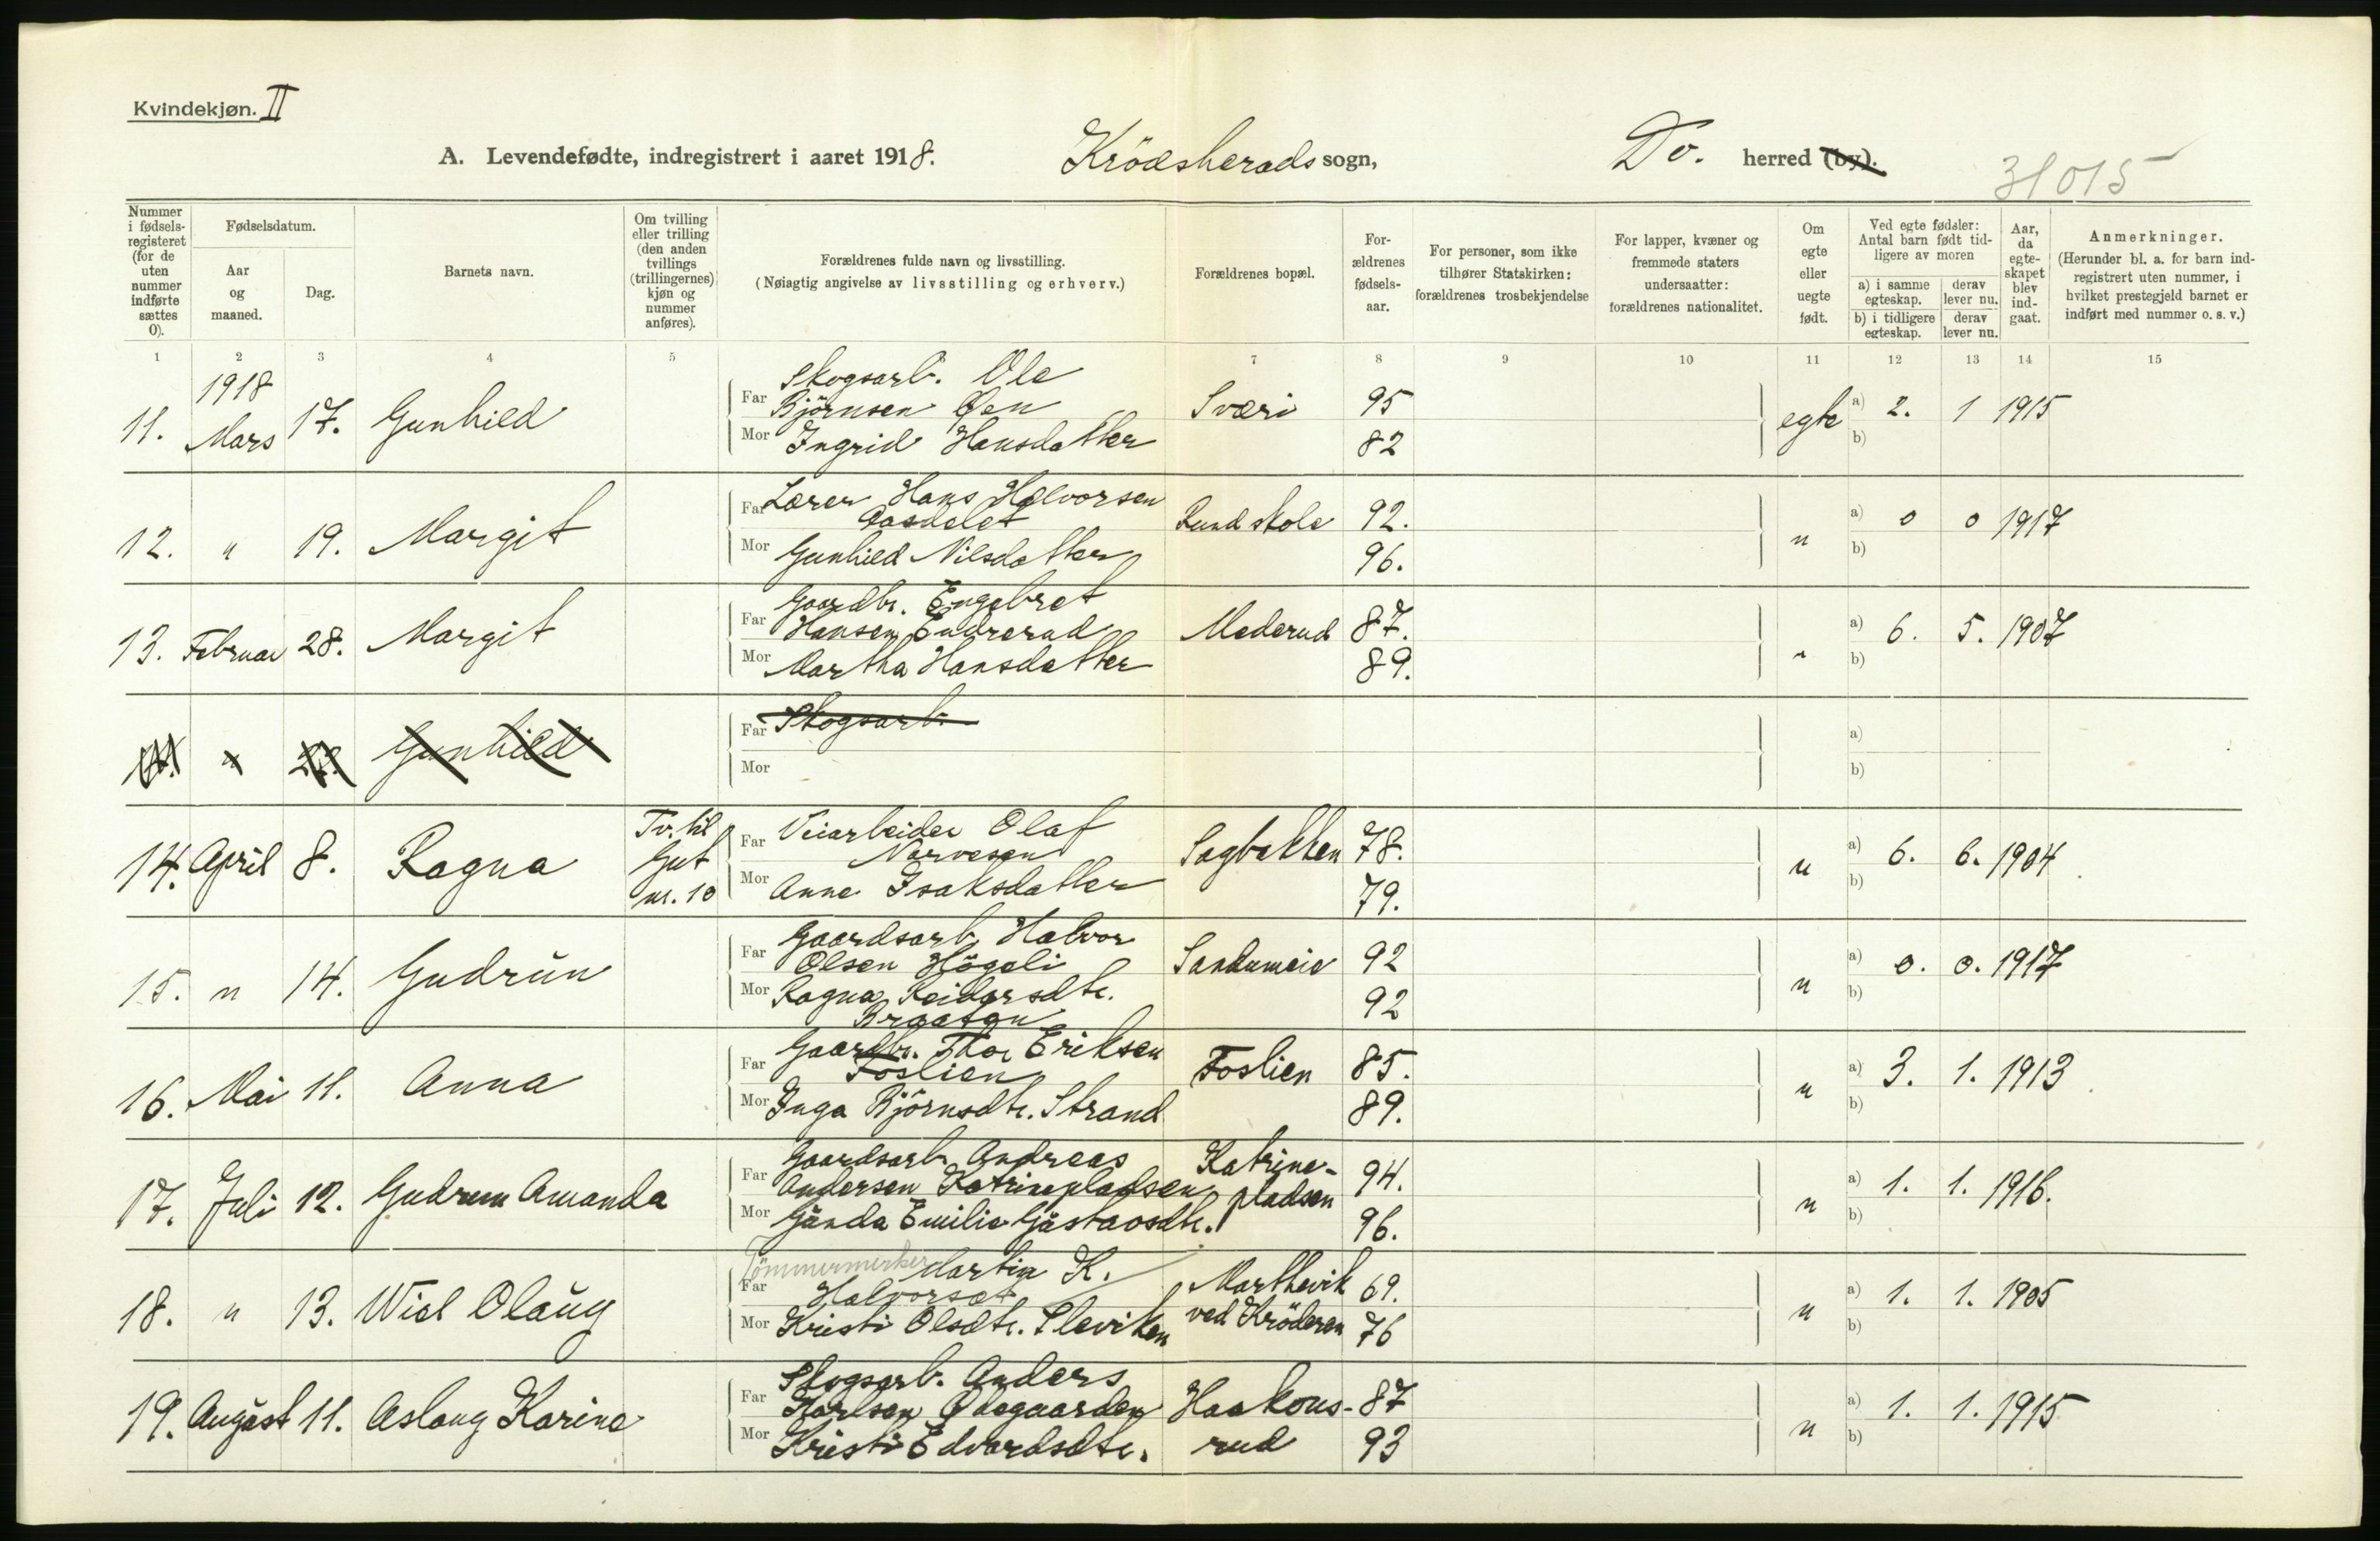 Kvindekjøn. II
A. Levendefødte, indregistrert i aaret 1918. Krödsherads sogn, Do. herred (by).
31015
Nummer i fødselsregisteret (for de uten nummer indførte sættes 0).
Fødselsdatum.
Aar og maaned.
Dag.
Barnets navn.
Om tvilling eller trilling (den anden tvillings (trillingernes) kjøn og nummer anføres).
Forældrenes fulde navn og livsstilling.
(Nøiagtig angivelse av livsstilling og erhverv.)
Forældrenes bopæl.
Forældrenes fødselsaar.
For personer, som ikke tilhører Statskirken: forældrenes trosbekjendelse
For lapper, kvæner og fremmede staters undersaatter: forældrenes nationalitet.
Om egte eller uegte født.
Ved egte fødsler: Antal barn født tidligere av moren
a) i samme egteskap.
derav lever nu.
b) i tidligere egteskap.
derav lever nu.
Aar, da egteskapet blev indgaat.
Anmerkninger.
(Herunder bl. a. for barn indregistrert uten nummer, i hvilket prestegjeld barnet er indført med nummer o. s. v.)
1 2 3 4 5 6 7 8 9 10 11 12 13 14 15
1918
11. Mars 17. Gunhild
Far Skogsarb. Ole
Björnsen Øen Sværi 95
Mor Ingrid Hansdatter 82
egte a) 2. 1 1915
b)
12. " 19. Margit
Far Lærer Hans Halvorsen
Aasdelet Rund skole 92.
Mor Gunhild Nilsdatter 96.
" a) 0 0 1917
b)
13. Februar 28. Margit
Far Gaardbr. Engebret
Hansen Endrerud Mederud 87.
Mor Martha Hansdatter 89.
" a) 6. 5. 1907
b)
14. " Gunhild
Far Skogsarb.
Mor
a)
b)
14. April 8. Ragna
Tv. til
Gut
nr. 10
Far Veiarbeider Olaf
Narvesen Sagbakken 78.
Mor Anne Isaksdatter 79.
" a) 6. 6. 1904
b)
15. " 14. Gudrun
Far Gaardsarb. Halvor
Olsen Högeli Sandumeie 92
Mor Ragna Reidarsdtr.
Braaten 92
" a) 0. 0. 1917
b)
16. Mai 11. Anna
Far Gaardbr. Thor Eriksen
Foslien Foslien 85.
Mor Inga Björnsdtr. Strand 89.
" a) 3. 1. 1913
b)
17. Juli 12. Gudrun Amanda
Far Gaardsarb. Andreas
Andersen Katrinepladsen Katrine-
pladsen 94.
Mor Gunda Emilie Gustavsdtr. 96.
" a) 1. 1. 1916.
b)
18. " 13. Wiel Olaug
Tömmermerker Martin K.
Far Halvorset Marthevik 69.
Mor Kristi Olsdtr. Sleviken ved Kröderen 76
" a) 1. 1. 1905
b)
19. August 11. Aslaug Karine
Far Skogsarb. Anders
Karlsen Ødegaarden Haakons- 87
Mor Kristi Edvardsdtr. rud 93
" a) 1. 1. 1915
b)